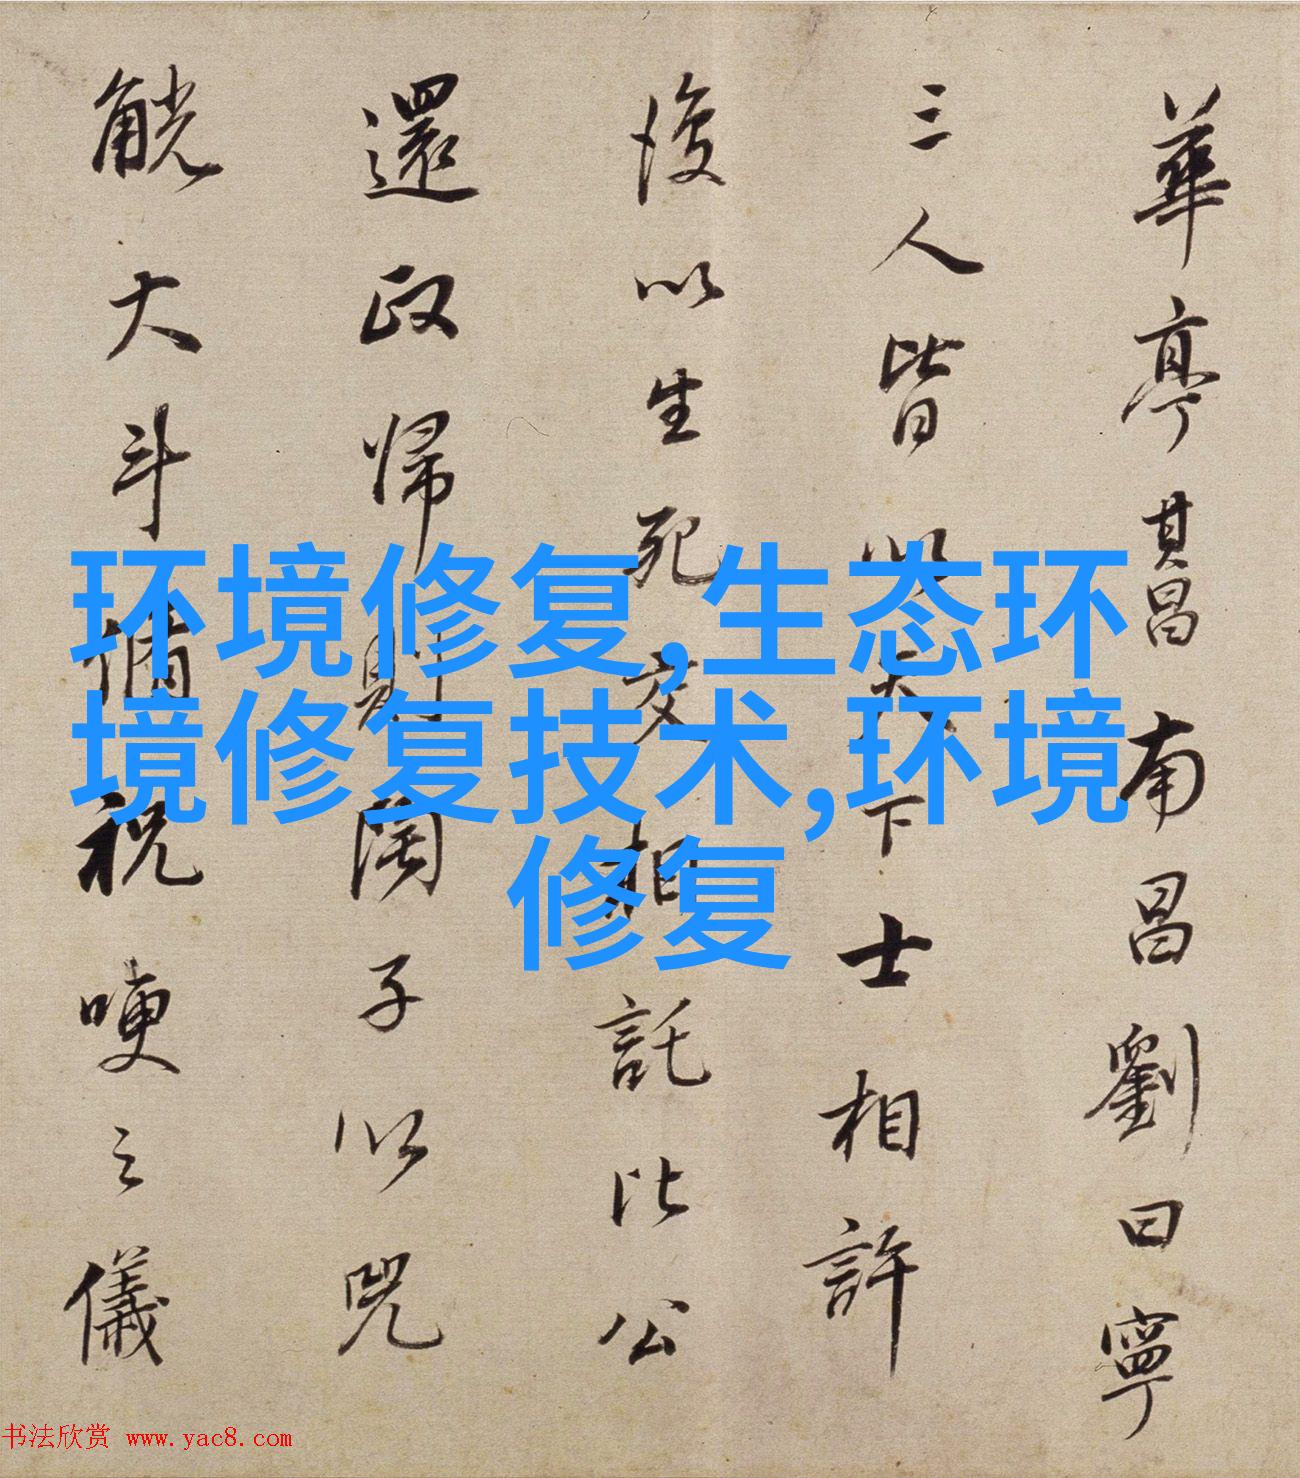 華亭其昌南昌劉曰寧
三人皆以天下士相許
後以生死交相託比公
還政歸則闕子以兕
觥大斗脩祝哽之儀
环境修复,生态环
境修复技术,环境
修复
书法欣赏 www.yac8.com